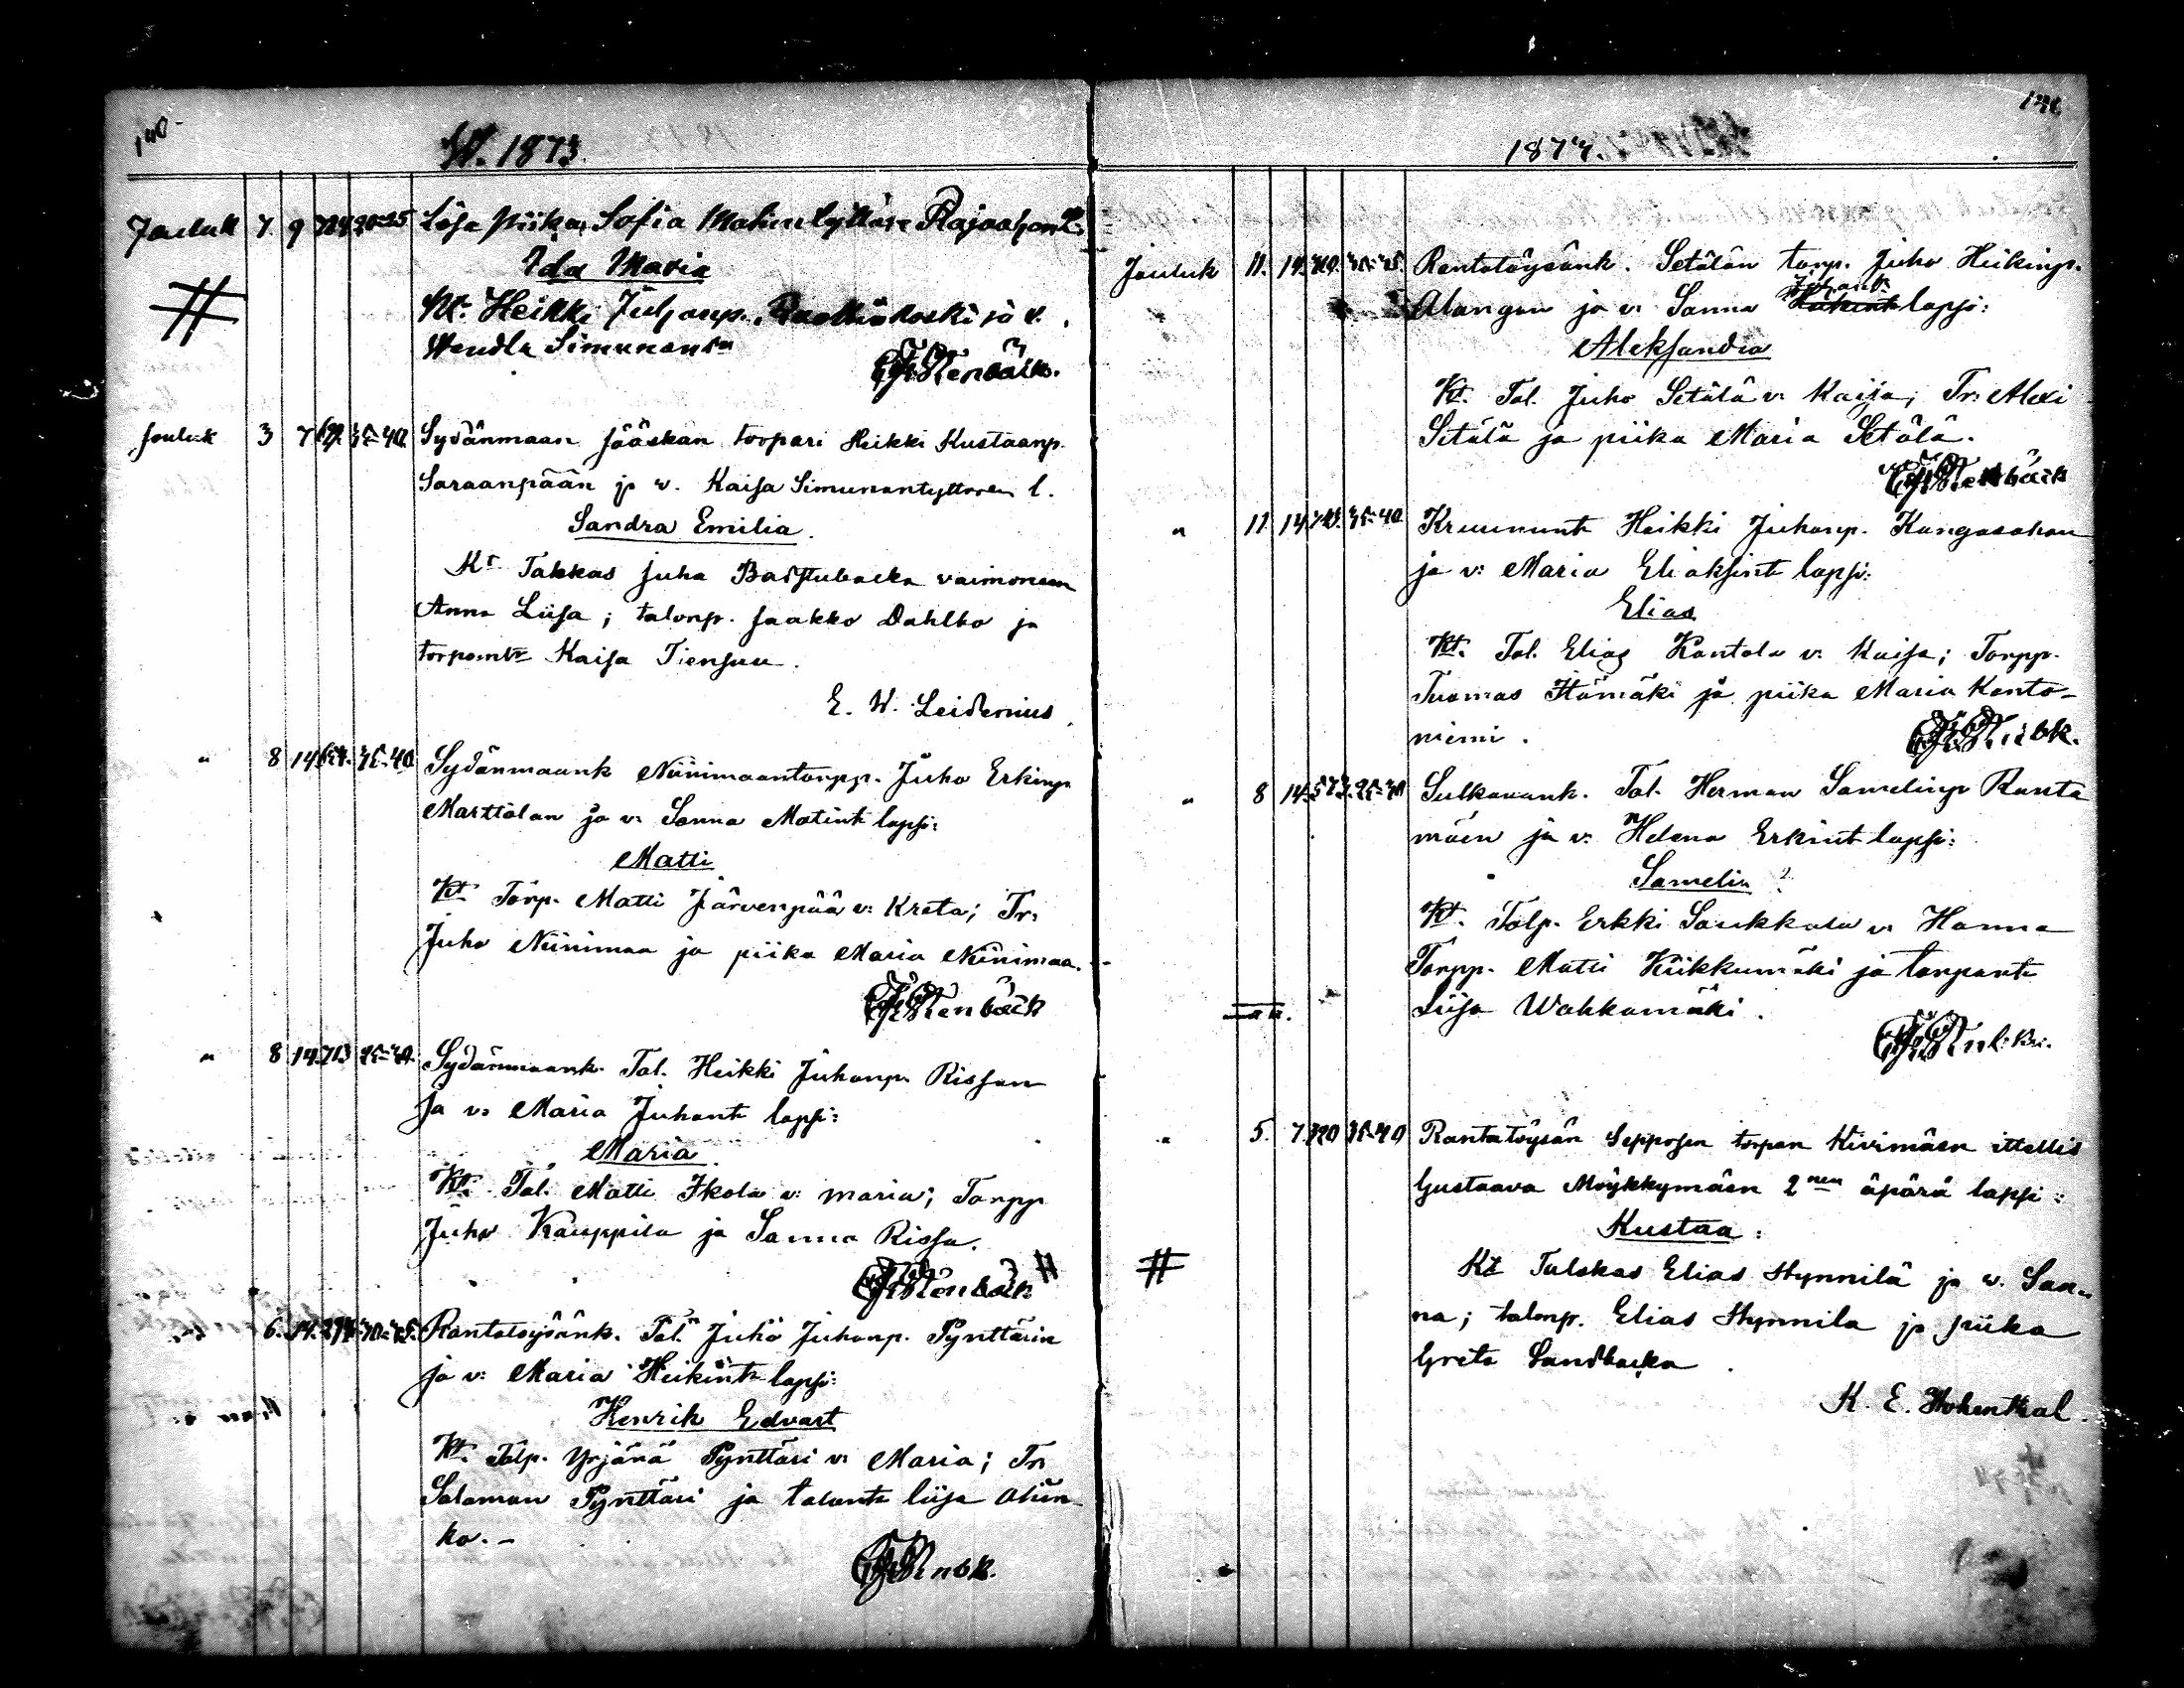 140
W. 1873.
Jouluk 7. 9 20-25 Lösa piikan Sofia Rajaahon l.
Ida Maria
Kt. Heikki Juhanp. ja v.
Wendla Simunant
Jouluk 3 7 35-40 Sydänmaan Jääskan torpari Heikki Kustaanp.
Saraanpään ja w. Kaisa Simunantyttären l.
Sandra Emilia.
Kt Talskas Juha Badstubacka vaimoneen
Anna Liisa; talonp. Jaakko Dahlbo ja
torpantr Kaisa Tiensuu.
E. W. Leidenius
" 8 14 35-40 Sydänmaank Niinimaantorpp. Juho Erkinp.
Marttälan ja v: Sanna Matint lapsi:
Matti
Kt Torp. Matti Järvenpää v: Kreta; Tr:
Juho Niinimaa ja piika Maria Niinimaa.
" 8 14. 713 35-40. Sydänmaank. Tal. Heikki Juhanp. Rissan
ja v: Maria Juhant lapsi:
Maria
Kt. Tal. Matti Ikola v: Maria; Torpp
Juho Kauppila ja Sanna Rissa.
6. 14. Rantatöysänk. Tal. Juho Juhanp. Pynttärin
ja v: Maria Heikint lapsi:
Henrik Edvart
Kt. Talp. Yrjänä Pynttäri v: Maria; Tr:
Salaman Pynttäri ja talont liisa
ko.-
1873.
Jouluk 11. 14. Rantatöysänk. Setälän torp. Juho Heikinp.
Alangon ja v: Sanna Juhant lapsi:
Aleksandra
Kt. Tal. Juho Setälä v: Kaisa; Tr: Alexi
Setälä ja piika Maria Setälä.
" 11 14 35-40 Kruununt Heikki Juhanp. Kangasahon
ja v: Maria Eliaksint lapsi:
Elias
Kt. Tal. Elias Kantola v: Kaisa; Torpp.
Tuomas Hömäki ja piika Maria Kanto-
niemi.
" 8 14. Sulkavank. Tal. Herman Samelinp Ranta
mäen ja v: Helena Erkint lapsi:
Sameli
Kt. Talp. Erkki Saukkola v: Hanna
Torpp. Matti Kiikkumäki ja torpant
Liisa Wahkamäki.
" 5. 7. 35-40 Rantatöysän Sepposen torpan Kivimäen ittellis
Gustaava Möykkymäen 2nen äpärä lapsi:
Kustaa:
Kt Talskas Elias Hynnilä ja w. San-
na; talonp. Elias Hynnilä ja piika
Greta Sandbacka.
K. E. Hohenthal.